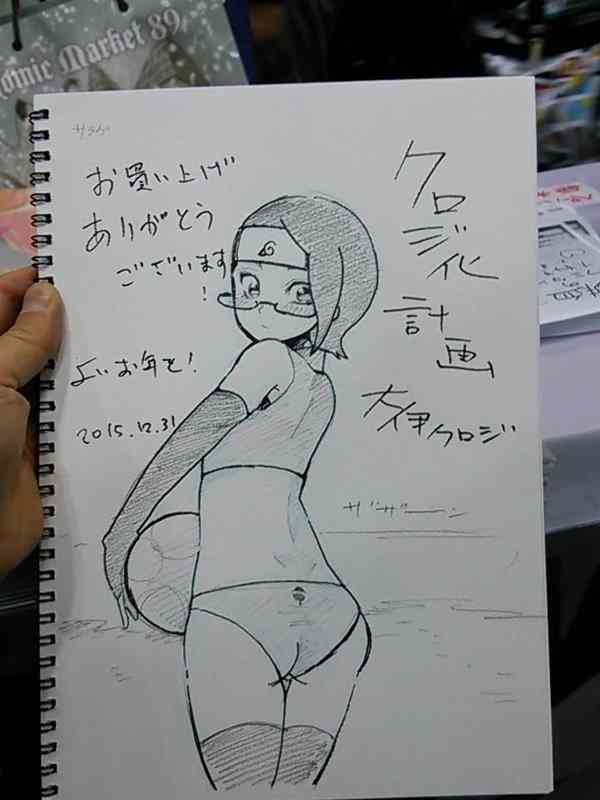 Comic Market 89
サラダ
お買い上げ
ありがとう
ございます
!
よいお年を!
2015.12.31
クロ
ジ化
計画
大伊クロジ
ザザーン